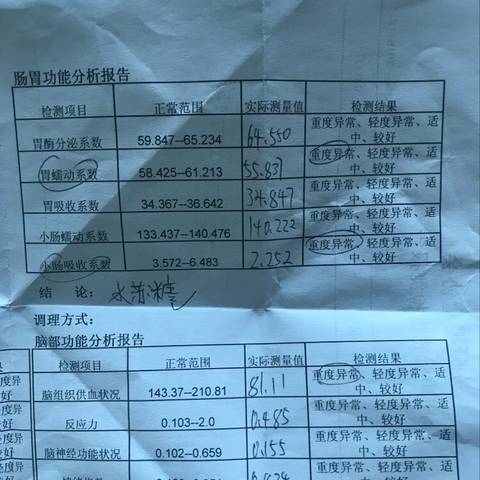 肠胃功能分析报告
检测项目 正常范围 实际测量值 检测结果
胃酶分泌系数 59.847--65.234 64.550 重度异常、轻度异常、适中、较好
胃蠕动系数 58.425--61.213 55.837 重度异常、轻度异常、适中、较好
胃吸收系数 34.367--36.642 34.847 重度异常、轻度异常、适中、较好
小肠蠕动系数 133.437--140.476 140.222 重度异常、轻度异常、适中、较好
小肠吸收系数 3.572--6.483 2.252 重度异常、轻度异常、适中、较好
结 论： 水苏糖
调理方式：
脑部功能分析报告
检测项目 正常范围 实际测量值 检测结果
脑组织供血状况 143.37--210.81 81.11 重度异常、轻度异常、适中、较好
反应力 0.103--2.0 0.485 重度异常、轻度异常、适中、较好
脑神经功能状况 0.102--0.659 0.155 重度异常、轻度异常、适中、较好
重度异常、轻度异常、适